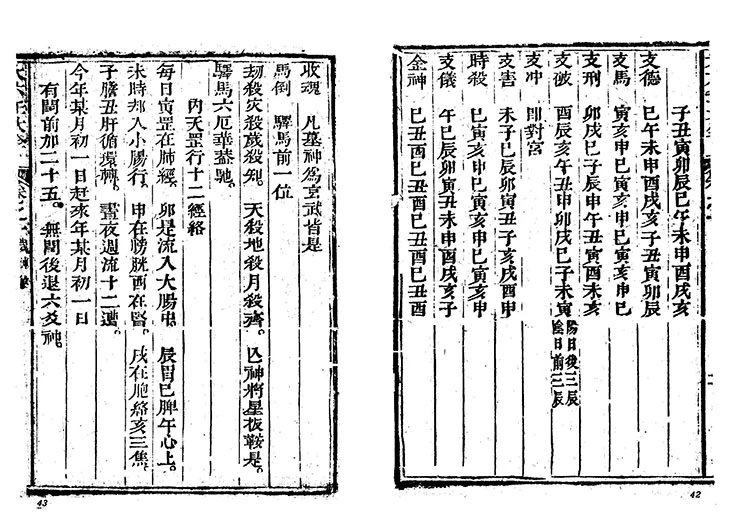 子丑寅卯辰巳午未申酉戌亥
支德 巳午未申酉戌亥子丑寅卯辰
支馬 寅亥申巳寅亥申巳寅亥申巳
支刑 卯戌巳子辰申午丑寅酉未亥
支破 酉辰亥午丑申卯戌巳子未寅 陽日後三辰 陰日前三辰
支冲 即對宮
支害 未子巳辰卯寅丑子亥戌酉申
時殺 巳寅亥申巳寅亥申巳寅亥申
支儀 午巳辰卯寅丑未申酉戌亥子
金神 巳丑酉巳丑酉巳丑酉巳丑酉
42
收魂 凡墓神為玄武皆是
馬倒 驛馬前一位
劫殺灾殺歲殺知。 天殺地殺月殺齊。 亡神將星扳鞍是。
驛馬六厄華蓋馳。
內天罡行十二經絡
每日寅罡在肺經。 卯是流入大腸中。 辰胃巳脾午心上。
未時却入小腸行。 申在膀胱酉在腎。 戌在胞絡亥三焦。
子膽丑肝循環轉。 晝夜週流十二遭。
今年某月初一日起來年某月初一日
有閏前加二十五。 無閏後退六爻神。
43